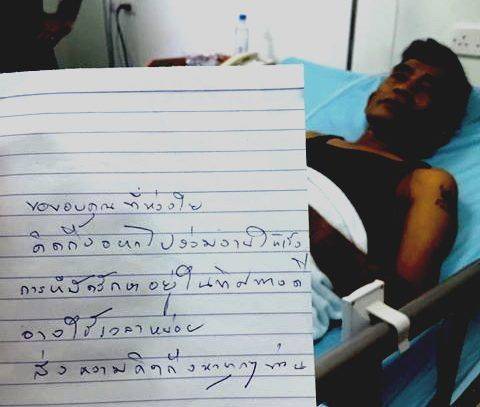 ขอขอบคุณ ที่ห่วงใย
คิดถึงอยากไปร่วมงานให้เร็ว
การหับัดรักษาอยู่ในทิศทางดี
อาจใช้เวลาหน่อย
ส่งความคิดถึงมาทุกๆท่าน